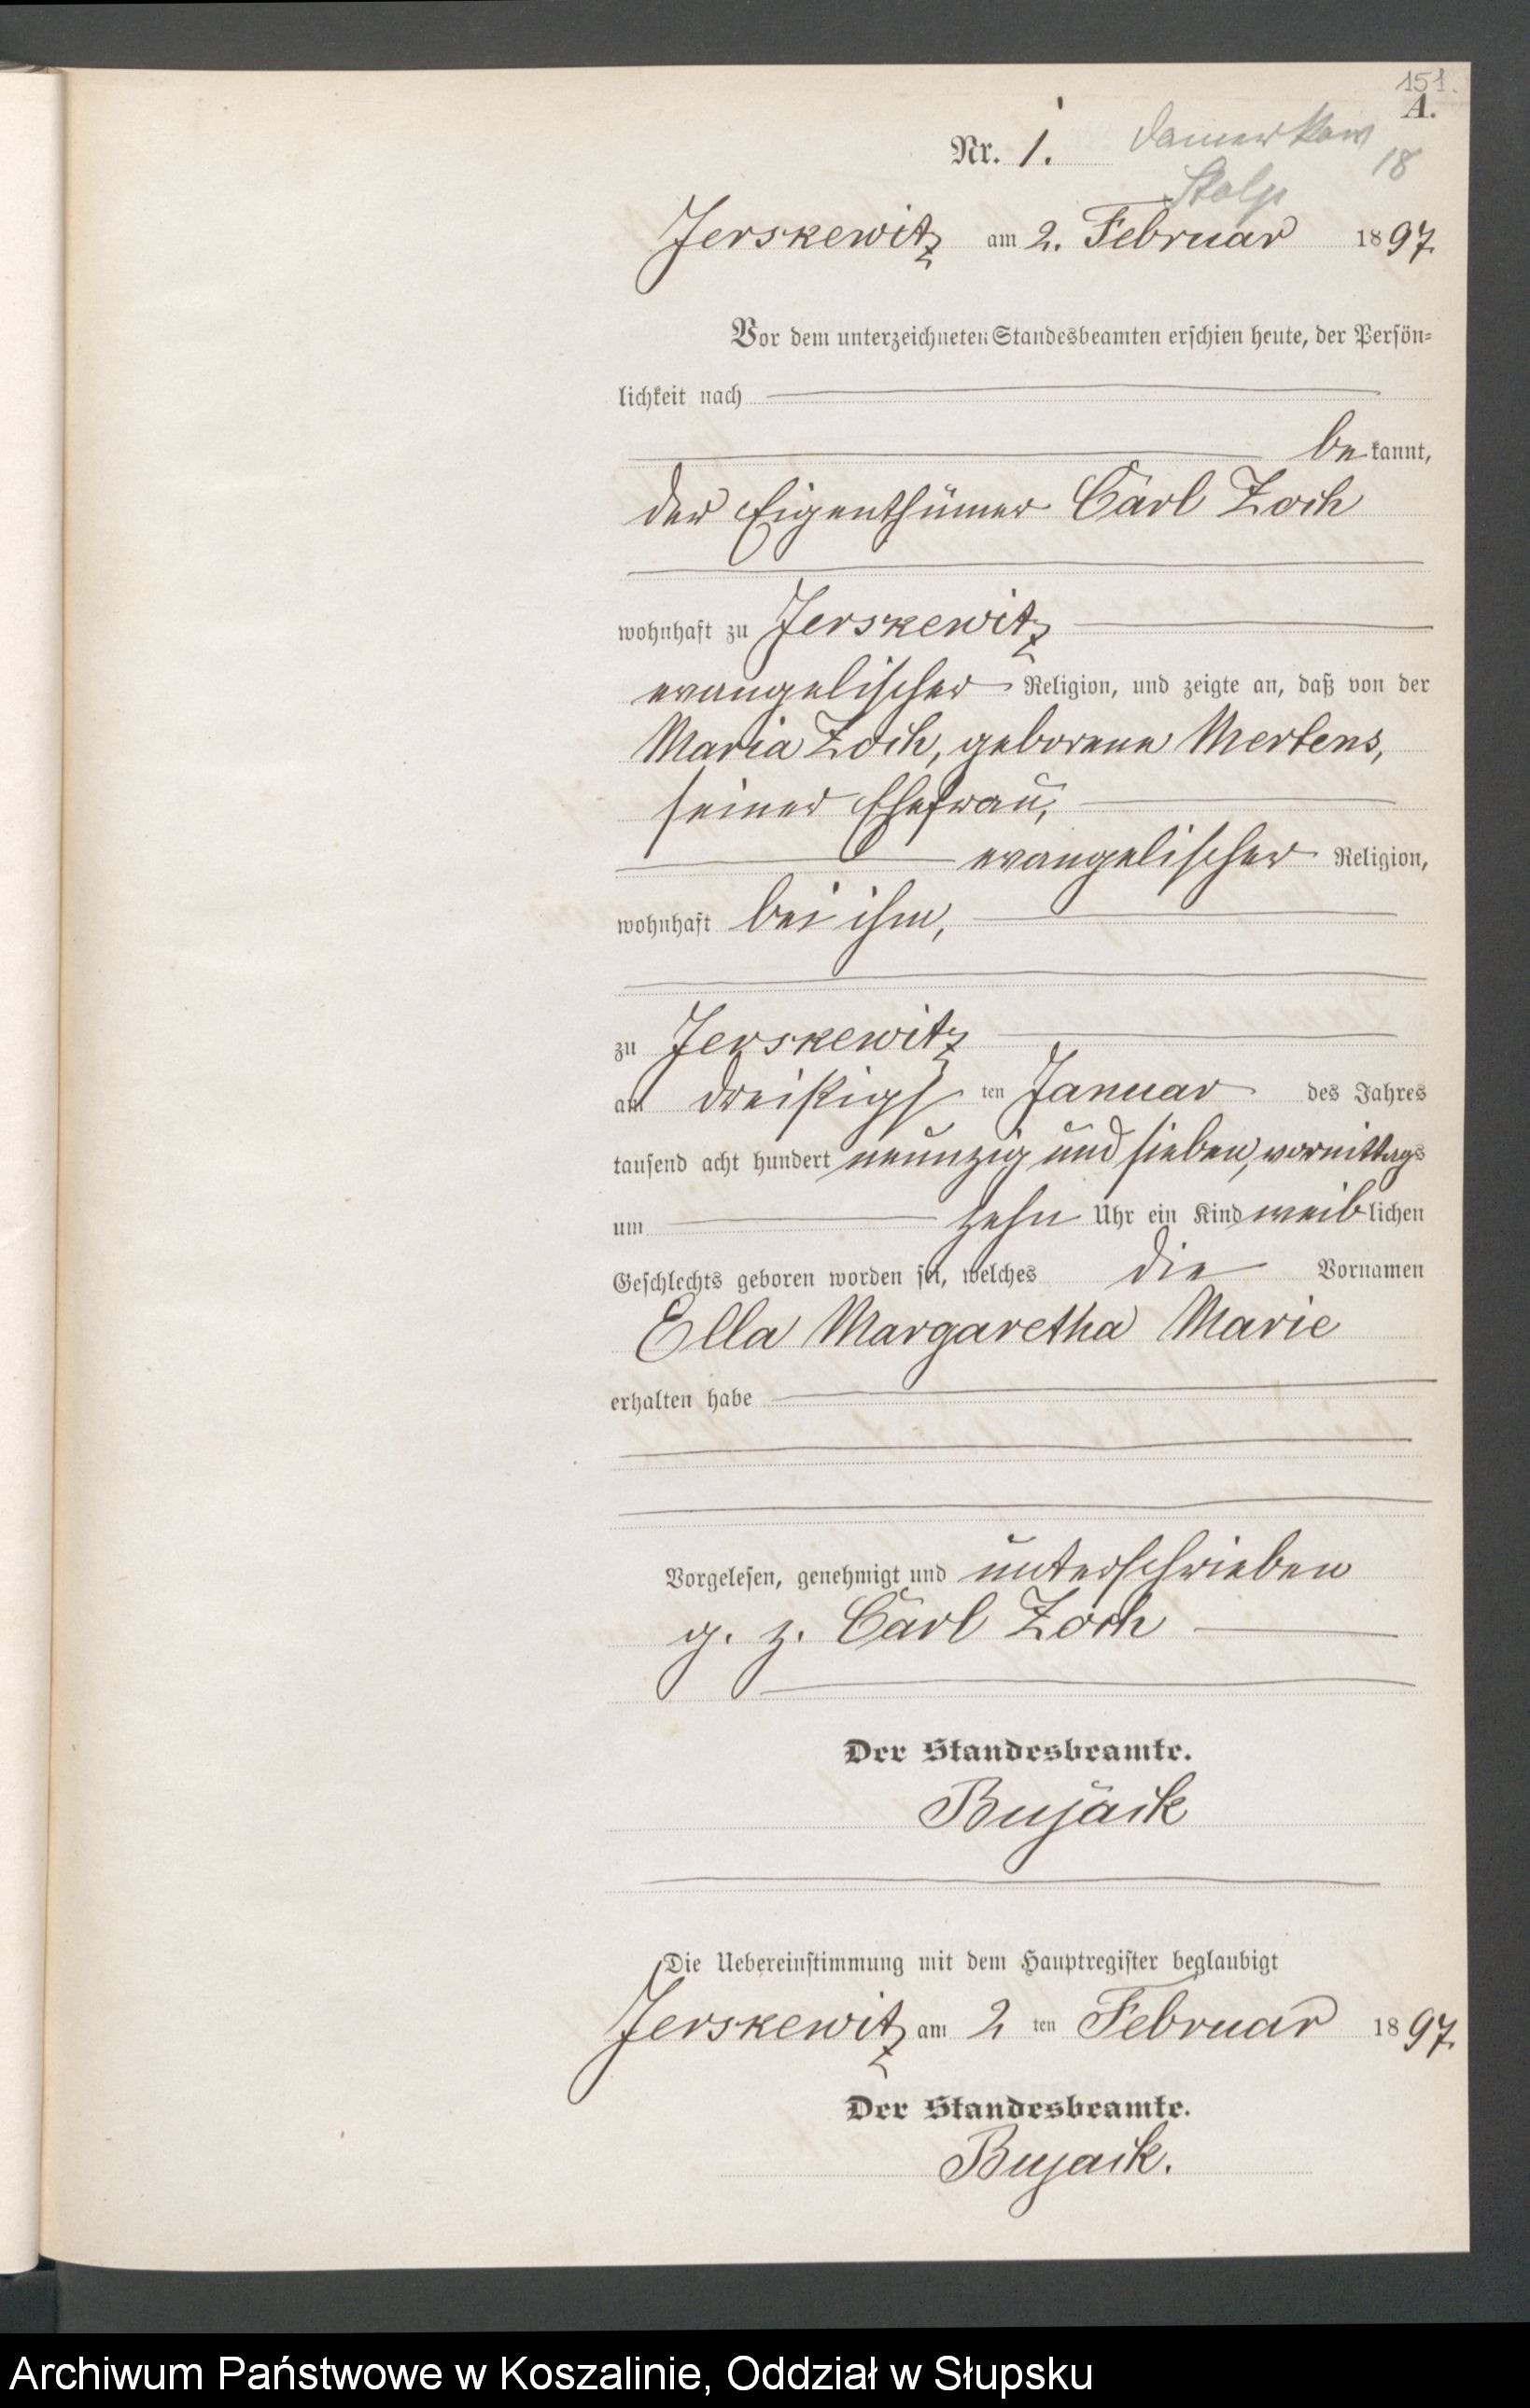 151.
A.
Nr. 1. Damerkow
18
Stolp
Jerskewitz am 2. Februar 1897.
Vor dem unterzeichneten Standesbeamten erschien heute, der Persön-
lichkeit nach
bekannt,
der Eigenthümer Carl Zoch
wohnhaft zu Jerskewitz
evangelischer Religion, und zeigte an, daß von der
Maria Zoch, geborene Mertens,
seiner Ehefrau,
evangelischer Religion,
wohnhaft bei ihm,
zu Jerskewitz
am dreißigsten Januar des Jahres
tausend acht hundert neunzig und sieben, vormittags
um zehn Uhr ein Kind weiblichen
Geschlechts geboren worden sei, welches die Vornamen
Ella Margaretha Marie
erhalten habe
Vorgelesen, genehmigt und unterschrieben
g. z. Carl Zoch
Der Standesbeamte.
Bujack
Die Uebereinstimmung mit dem Hauptregister beglaubigt
Jerskewitz am 2 ten Februar 1897.
Der Standesbeamte.
Bujack.
Archiwum Państwowe w Koszalinie, Oddział w Słupsku